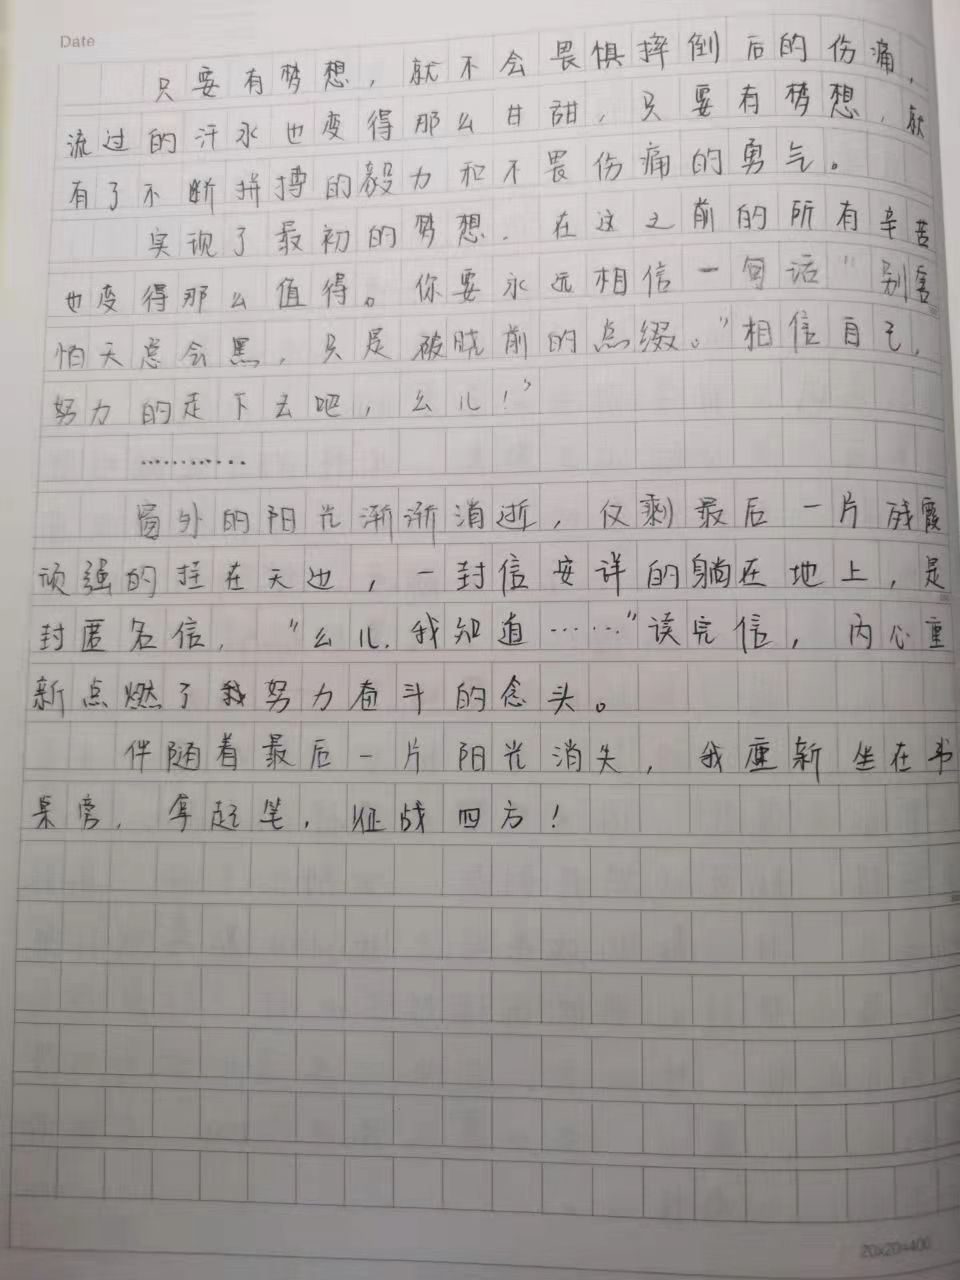 Date
只要有梦想，就不会畏惧摔倒后的伤痛，
流过的汗水也变得那么甘甜，只要有梦想，就
有了不断拼搏的毅力和不畏伤痛的勇气。
实现了最初的梦想，在这之前的所有辛苦
也变得那么值得。你要永远相信一句话“别害
怕天总会黑，只是破晓前的点缀。”相信自己，
努力的走下去吧，么儿！”
…………
窗外的阳光渐渐消逝，仅剩最后一片残霞
顽强的挂在天边，一封信安详的躺在地上，是
封匿名信，“么儿，我知道……”读完信，内心重
新点燃了我努力奋斗的念头。
伴随着最后一片阳光消失，我重新坐在书
桌旁，拿起笔，征战四方！
20x20=400